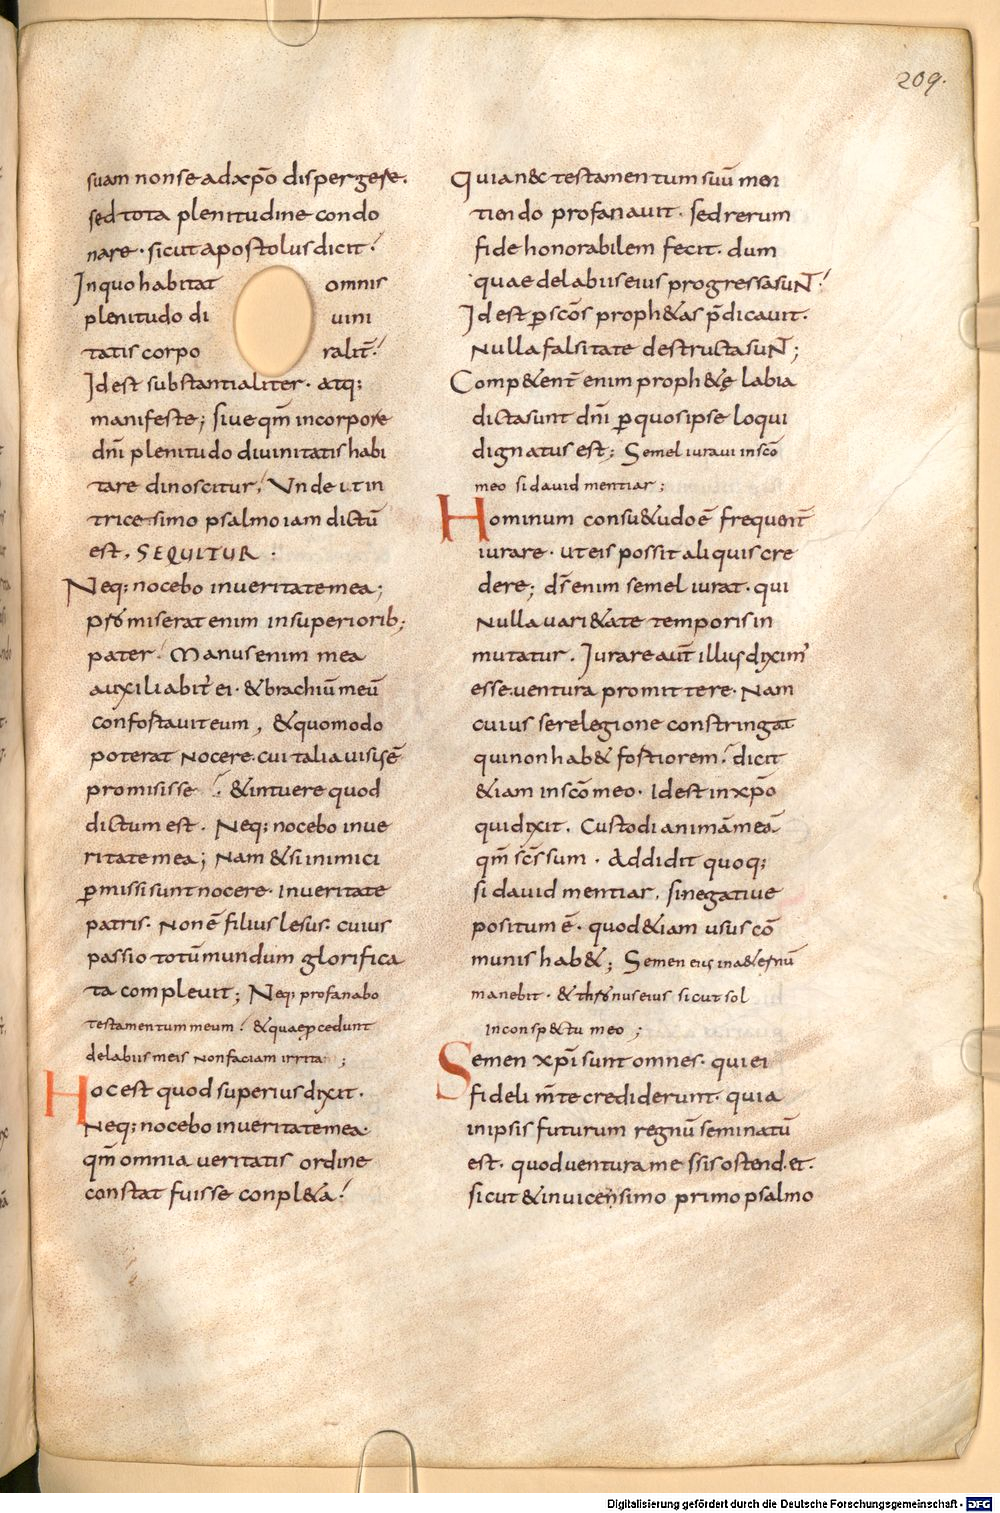 209.
suam non se ad xp̄o dispergere.
sed tota plenitudine condo
nare · sicut apostolus dicit ⁊
In quo habitat omnis
plenitudo di uini
tatis corpo ralit̄ ⁊
Id est substantialiter · atq;
manifeste; siue qm̄ in corpore
dn̄i plenitudo diuinitatis habi
tare dinoscitur, Vnde & in
trice simo psalmo iam dictū
est, SEQUITUR ·
Neq; nocebo in ueritate mea;
miserat enim in superiorib;
pater · Manus enim mea
auxiliabit̄ ei · & brachiū meū
confortauit eum, & quomodo
poterat nocere · cui talia uisis ē
promisisse ⁊ & intuere quod
dictum est · Neq; nocebo in ue
ritate mea; Nam & si inimici
p̱missi sunt nocere · In ueritate
patris · Non ē filius lesus · cuius
passio totū mundum glorifica
ta compleuit; Neq; profanabo
testamentum meum ⁊ & quae p̱cedunt
de labiis meis non faciam irrita;
Hoc est quod superius dixit ·
Neq; nocebo in ueritate mea·
qm̄ omnia ueritatis ordine
constat fuisse conpl&a ⁊
Quia n&c testamentum suū men
tiendo profanauit · sed rerum
fide honorabilem fecit · dum
quae de labiis eius progressa suNT ⁊
Id est p̱ scōs proph&as p̄dicauit ·
Nulla falsitate destructa suNT;
Comp&ent̄ enim proph&ę labia
dicta sunt dn̄i p̱ quos ipse loqui
dignatus est; Semel iuraui in scō
meo si dauid mentiar;
Hominum consu&udo ē frequent̄
iurare · ut eis possit aliquis cre
dere; ds̄ enim semel iurat · qui
Nulla uari&ate temporis in
mutatur · Iurare aut̄ illus diximꝰ
esse uentura promittere · Nam
cuius se relegione constringat
qui non hab& fortiorem ⁊ dicit
&iam in scō meo · Id est in xp̄o
qui dixit, Custodi animā meā
qm̄ scs̄ sum · Addidit quoq;
si dauid mentiar, si negatiue
positum ē · quod &iam usus cō
munis hab&; Semen eius in a&ernū
manebit · & thronus eius sicut sol
in consp&tu meo;
Semen xp̄i sunt omnes · qui ei
fideli m̄te crediderunt · quia
in ipsis futurum regnū seminatū
est · quod uentura messis ostend&.
sicut & in uicensimo primo psalmo
Digitalisierung gefördert durch die Deutsche Forschungsgemeinschaft - DFG